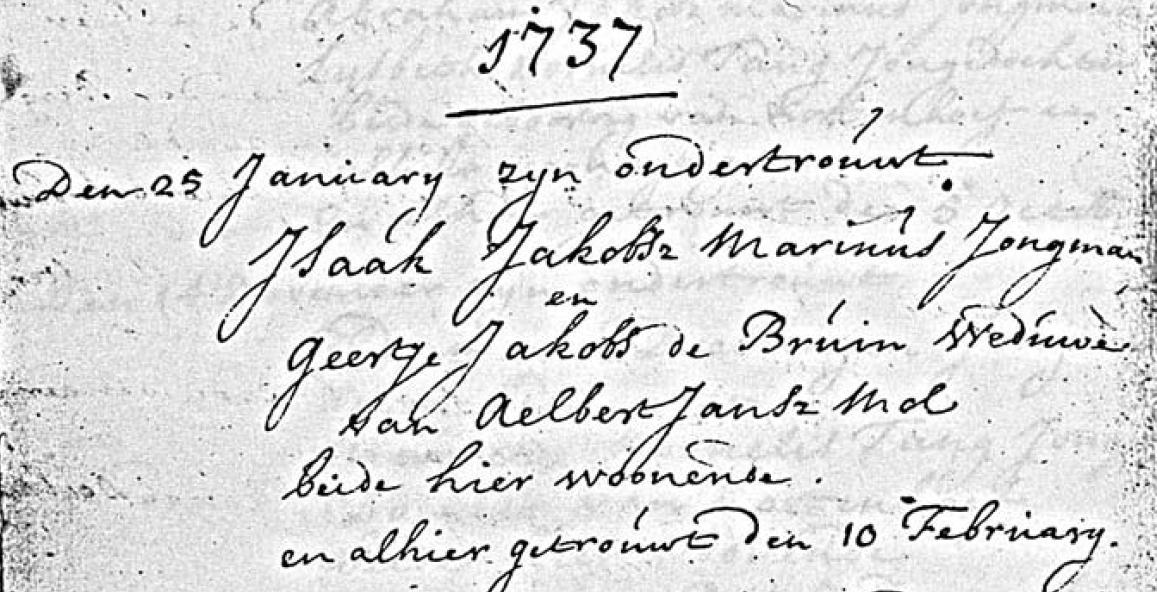 1737
Den 25 January zyn ondertrouwt.
Isaak Jakobsz Marinus Jongman
en
Geertje Jakobs de Bruin Weduwe
van Aelbert Jansz Mol
beide hier woonende.
en alhier getrouwt den 10 February.